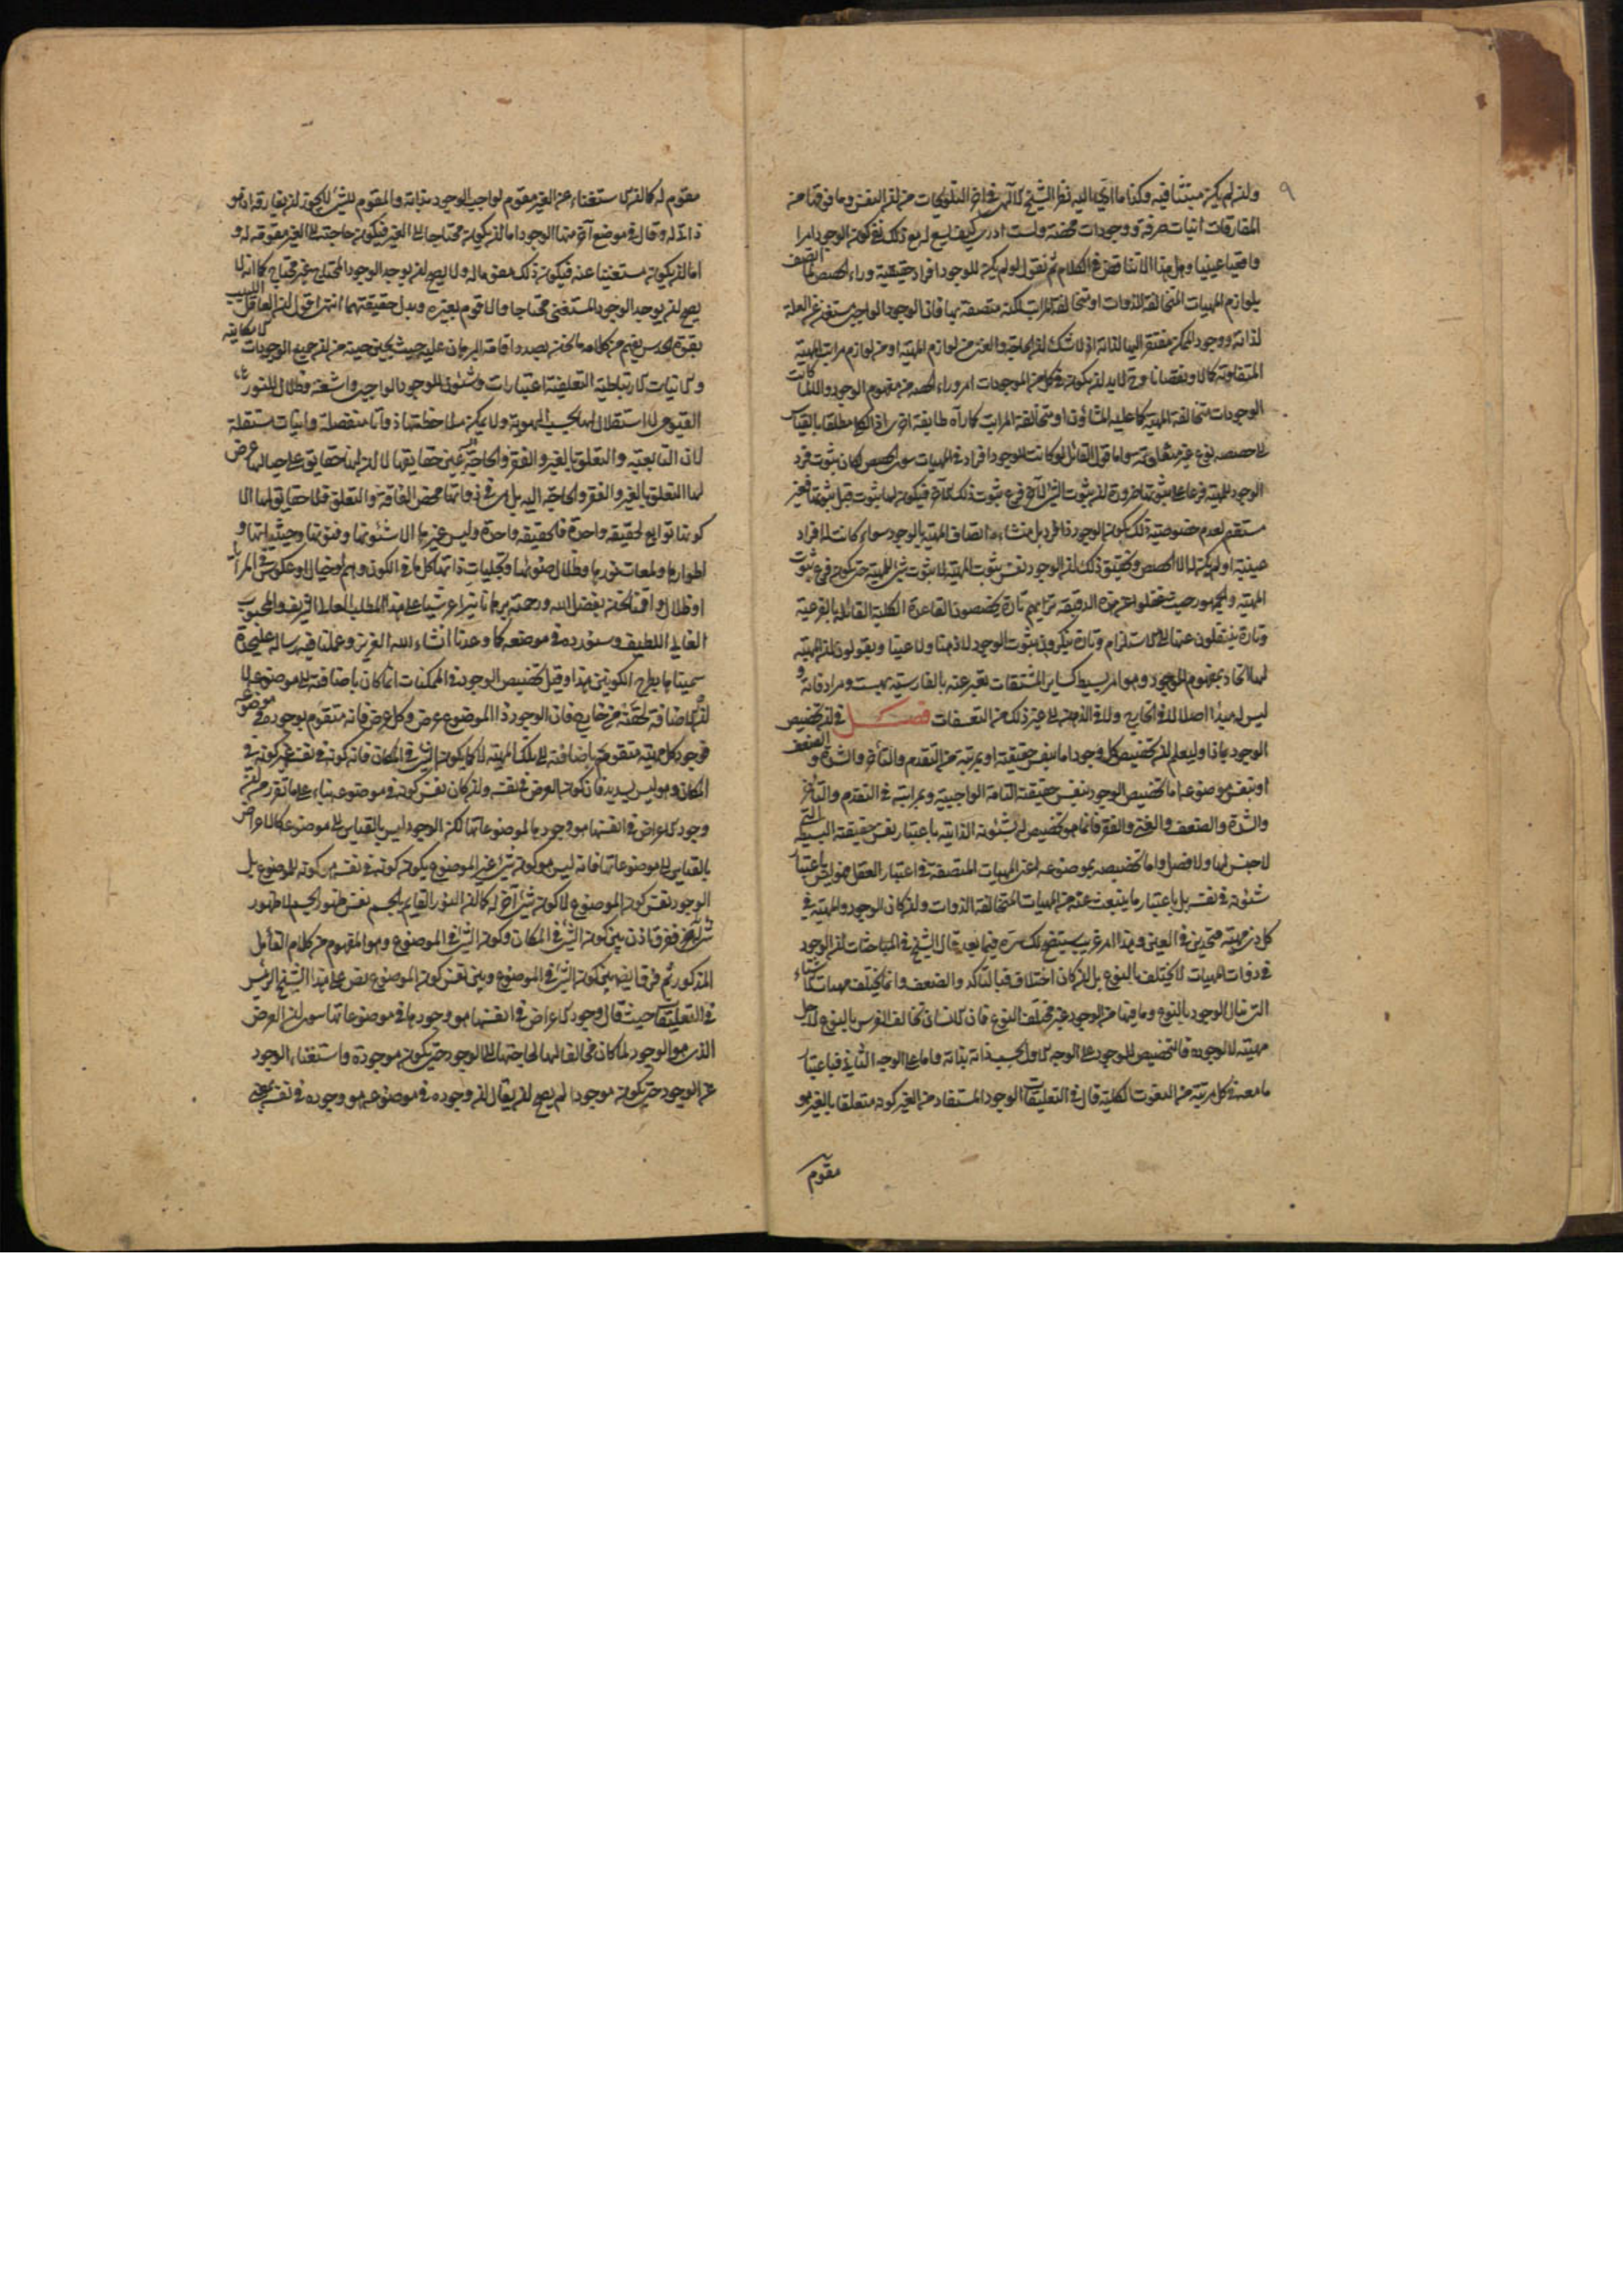 ٩
وان لم يكن مبتنيا فيه وكذا ما ادى اليه نظر الشيخ الالهى فى اخر التلويحات من ان النفس وما فوقها من
المفارقات انيات صرفة ووجودات محضة ولست ادرى كيف يسع له مع ذلك نفى كون الوجود امرا
واقعيا عينيا وهل هذا الا تناقض فى الكلام ثم نقول لو لم يكن للوجود افراد حقيقية وراء الحصص لما اتصف
بلوازم المهيات المتخالفة الذوات او متخالفة المراتب لكنه متصفة بها فان الوجود الواجبى مستغن عن العلة
لذاته ووجود الممكن مفتقر اليها لذاته اذ لا شك ان الحاجة والغنى من لوازم المهية او من لوازم مراتب المهية
المتفاوتة كمالا ونقصانا وح لا بد ان يكون فى كل من الموجودات امر وراء الحصة من مفهوم الوجود والا لما كانت
الوجودات متخالفة المهية كما عليه المشاؤن او متخالفة المراتب كما رآه طايفة اخرى اذ الكلى مطلقا بالقياس
الى حصصه نوع غير متفاوت سوا ما قول القائل لو كانت للوجود افراد فى المهيات سوى الحصص لكان ثبوت فرد
الوجود للمهية فرعا على ثبوتها ضرورة ان ثبوت الشئ للآخر فرع ثبوت ذلك الآخر فيكون لها ثبوت قبل ثبوتها فغير
مستقيم لعدم خصوصية ذلك بكون الوجود ذا فرد بل منشاءه اتصاف المهية بالوجود سواء كانت له افراد
عينية او لم يكن له الا الحصص وتحقيق ذلك ان الوجود نفس ثبوت المهية لا ثبوت شئ للمهية حتى يكون فرع ثبوت
المهية والجمهور حيث غفلوا عن هذه الدقيقة تراهم تارة يخصصون القاعدة الكلية القائلة بالفرعية
وتارة ينتقلون عنها الى الاستلزام وتارة ينكرون ثبوت الوجود لا ذهنا ولا عينا ويقولون ان المهية
لها اتحاد بمفهوم الموجود وهو امر بسيط كساير المشتقات يعبر عنه بالفارسية بهست ومرادفاته و
ليس له مبدأ اصلا لا فى الخارج ولا فى الذهن الى غير ذلك من التعسفات فصل فى ان تخصيص
الوجود بماذا وليعلم ان تخصيص كل وجود اما بنفس حقيقته او بمرتبة من التقدم والتأخر والشدة و الضعف
او بنفس موضوعه اما تخصيص الوجود بنفس حقيقته التامة الواجبية وبمراتبه فى التقدم والتأخر
والشدة والضعف والغنى والفقر فانما هو تخصيص له بشئونه الذاتية باعتبار نفس حقيقته البسيطة التى
لا جنس لها ولا فصل واما تخصيصه بموضوعه اعنى المهيات المتصفة فى اعتبار العقل فهو ليس باعتبار
شئونه فى نفسه بل باعتبار ما ينبعث عنه من المهيات المتخالفة الذوات وان كان الوجود والمهية فى
كل ذى مهية متحدين فى العين وهذا امر غريب سيتضح لك سره فيما بعد قال الشيخ فى المباحثات ان الوجود
فى ذوات المهيات لا يختلف بالنوع بل ان كان اختلاف فبالتاكد والضعف وانما يختلف مهيات الاشياء
التى تنال الوجود بالنوع وما فيها من الوجود غير مختلف النوع فان الانسان يخالف الفرس بالنوع لاجل
مهيته لا لوجوده فالتخصيص للوجود على الوجه الاول بحسب ذاته بذاته واما على الوجه الثانى فباعتبار
ما معه فى كل مرتبة من النعوت الكلية قال فى التعليقات الوجود المستفاد من الغير كونه متعلقا بالغير هو
مقوم
مقوم له كما ان الاستغناء عن الغير مقوم لواجب الوجود بذاته والمقوم للشئ لا يجوز ان يفارقه اذ هو
ذاتى له وقال فى موضع آخر منها الوجود اما ان يكون محتاجا الى الغير فيكون حاجته الى الغير مقومة له و
اما ان يكون مستغنيا عنه فيكون ذلك مقوما له ولا يصح ان يوجد الوجود المحتاج غير محتاج كما انه لا
يصح ان يوجد الوجود المستغنى محتاجا والا قوم بغيره وبدل حقيقتهما انتهى اقول ان العاقل اللبيب
بقوة الحدس يفهم من كلامه ما نحن بصدد اقامة البرهان عليه حيث يحين حينه من ان جميع الوجودات الامكانية
والانيات الارتباطية التعلقية اعتبارات وشئون للوجود الواجبى واشعة وظلال للنور
القيومى لا استقلال لها بحسب الهوية ولا يمكن ملاحظتها ذواتا منفصلة وانيات مستقلة
لان التابعية والتعلق بالغير والفقر والحاجة عين حقايقها لا ان لها حقايق على حيالها عرض
لها التعلق بالغير والفقر والحاجة اليه بل هى فى ذواتها محض الفاقة والتعلق فلا حقايق لها الا
كونها توابع لحقيقة واحدة فالحقيقة واحدة وليس غيرها الا شئونها وفنونها وحيثياتها و
اطوارها ولمعات نورها وظلال ضوئها وتجليات ذاتها كل ما فى الكون وهم او خيال او عكوس فى المرايا
او ظلال واقمنا نحن بفضل الله ورحمته برهانا نيرا عرشيا على هذا المطلب العالى الشريف والمحبوب
الغالى اللطيف وسنورده فى موضعه كما وعدنا انشاء الله العزيز وعملنا فيه رسالة عليحدة
سميناها بطرح الكونين هذا وقيل تخصيص الوجود فى الممكنات انما كان باضافته الى موضوعه لا
ان الاضافة لحقته من خارج فان الوجود ذا الموضوع عرض وكل عرض فانه متقوم بوجوده فى موضوعه
فوجود كل مهية متقوم باضافته الى تلك المهية لا كما يكون الشئ فى المكان فان كونه فى نفسه غير كونه فى
المكان وهو ليس بسديد فان كون العرض فى نفسه وان كان نفس كونه فى موضوعه بناء على ما تقرر من ان
وجود الاعراض فى انفسها هو وجودها لموضوعاتها لكن الوجود ليس بالقياس الى موضوعه كالاعراض
بالقياس الى موضوعاتها فانه ليس هو كون شئ غير الموضوع يكون كونه فى نفسه هو كونه للموضوع بل
الوجود نفس كون الموضوع لا كون شئ آخر له كما ان النور القايم بالجسم نفس ظهور الجسم لا ظهور
شئ للجسم ففرق اذن بين كون الشئ فى المكان وكون الشئ فى الموضوع وهو المفهوم من كلام القائل
المذكور ثم فرق ايضا بين كون الشئ فى الموضوع وبين نفس كون الموضوع نص على هذا الشيخ الرئيس
فى التعليقات حيث قال وجود الاعراض فى انفسها هو وجودها فى موضوعاتها سوى ان العرض
الذى هو الوجود لما كان مخالفا لها لحاجتها الى الوجود حتى يكون موجودة واستغناء الوجود
عن الوجود حتى يكون موجودا لم يصح ان يقال ان وجوده فى موضوعه هو وجوده فى نفسه بمعنى